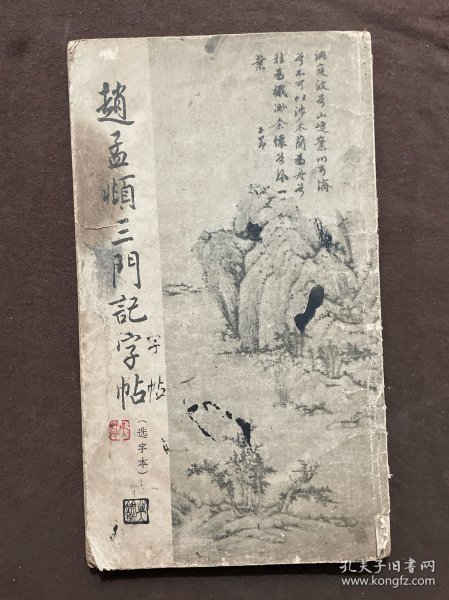 趙孟頫三門記字帖
字帖
(选字本)
洞庭波兮山崨嶪川可濟
兮不可以涉木蘭為舟兮
桂為檝渺余懷兮風一
葉 子昂
孔夫子旧书网
www.kongfz.com